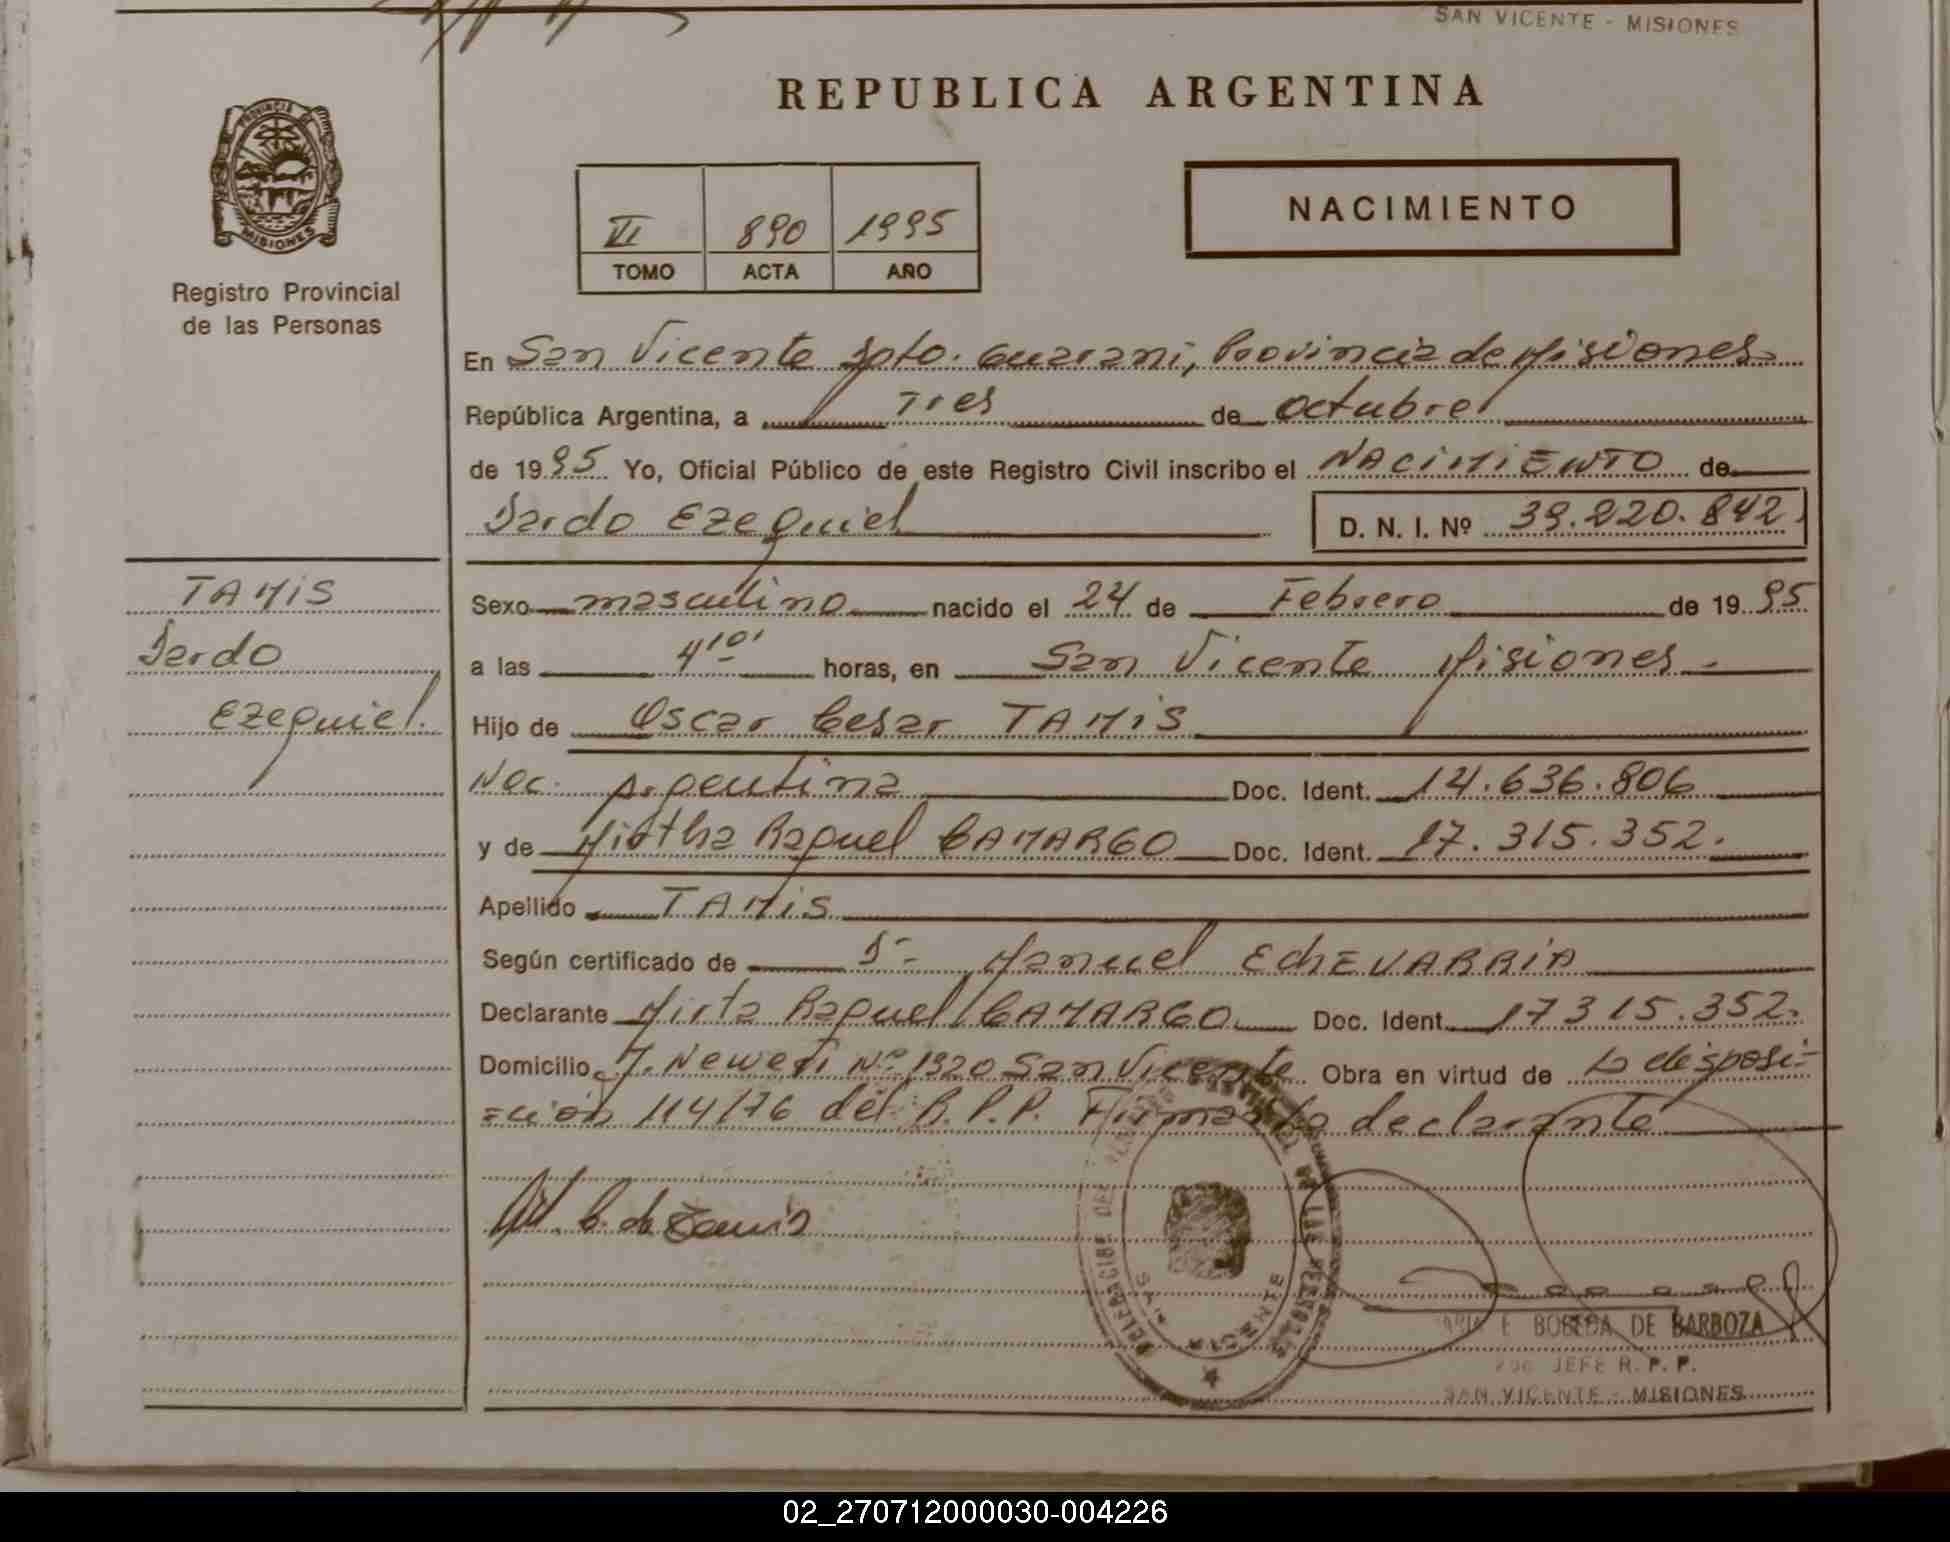 SAN VICENTE - MISIONES
REPUBLICA ARGENTINA
PROVINCIA DE
MISIONES
Registro Provincial
de las Personas
VI 890 1995
TOMO ACTA AÑO
NACIMIENTO
En San Vicente Dpto. Guarani, Provincia de Misiones
República Argentina, a Tres de octubre
de 1995 Yo, Oficial Público de este Registro Civil inscribo el NACIMIENTO de
Dardo Ezequiel D. N. I. Nº 39.220.842
TAMIS
Dardo
Ezequiel.
Sexo masculino nacido el 24 de Febrero de 1995
a las 4'10' horas, en San Vicente Misiones -
Hijo de Oscar Cesar TAMIS
Nac. Argentina Doc. Ident. 14.636.806
y de Mirtha Raquel CAMARGO Doc. Ident. 17.315.352.
Apellido TAMIS
Según certificado de Dr Manuel EchEVARRIA
Declarante Mirta Raquel CAMARGO Doc. Ident. 17315.352.
Domicilio Nº 1320 San Vicente Obra en virtud de La disposi-
=ción 114/76 del R.P.P. Firma la declarante
M. C. de Tamis
E BOBEDA DE BARBOZA
JEFE R. P. P.
SAN VICENTE - MISIONES
02_270712000030-004226